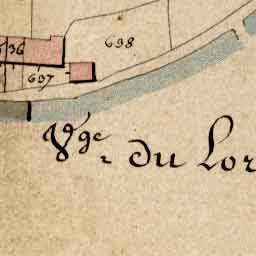 698
636
697
Vge du Lor